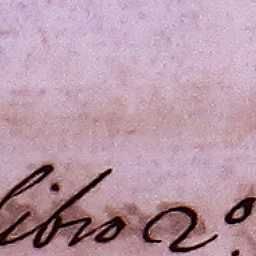 libro 2º.